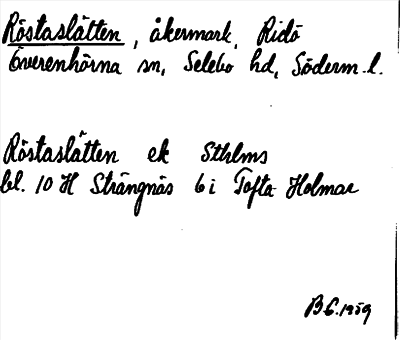 Röstaslätten, åkermark, Ridö
Överenhörna sn, Selebo hd, Söderm. l.
Röstaslätten ek Sthlms
bl. 10 H Strängnäs 6 i Tofta Holmar
B.G. 1959